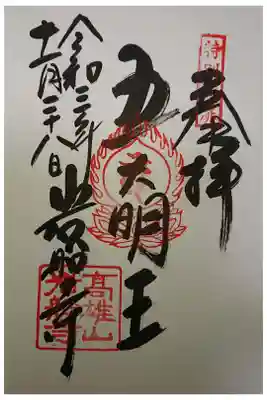 奉拝
五大明王
岩船寺
令和三年
十一月二十八日
高雄山
岩船寺